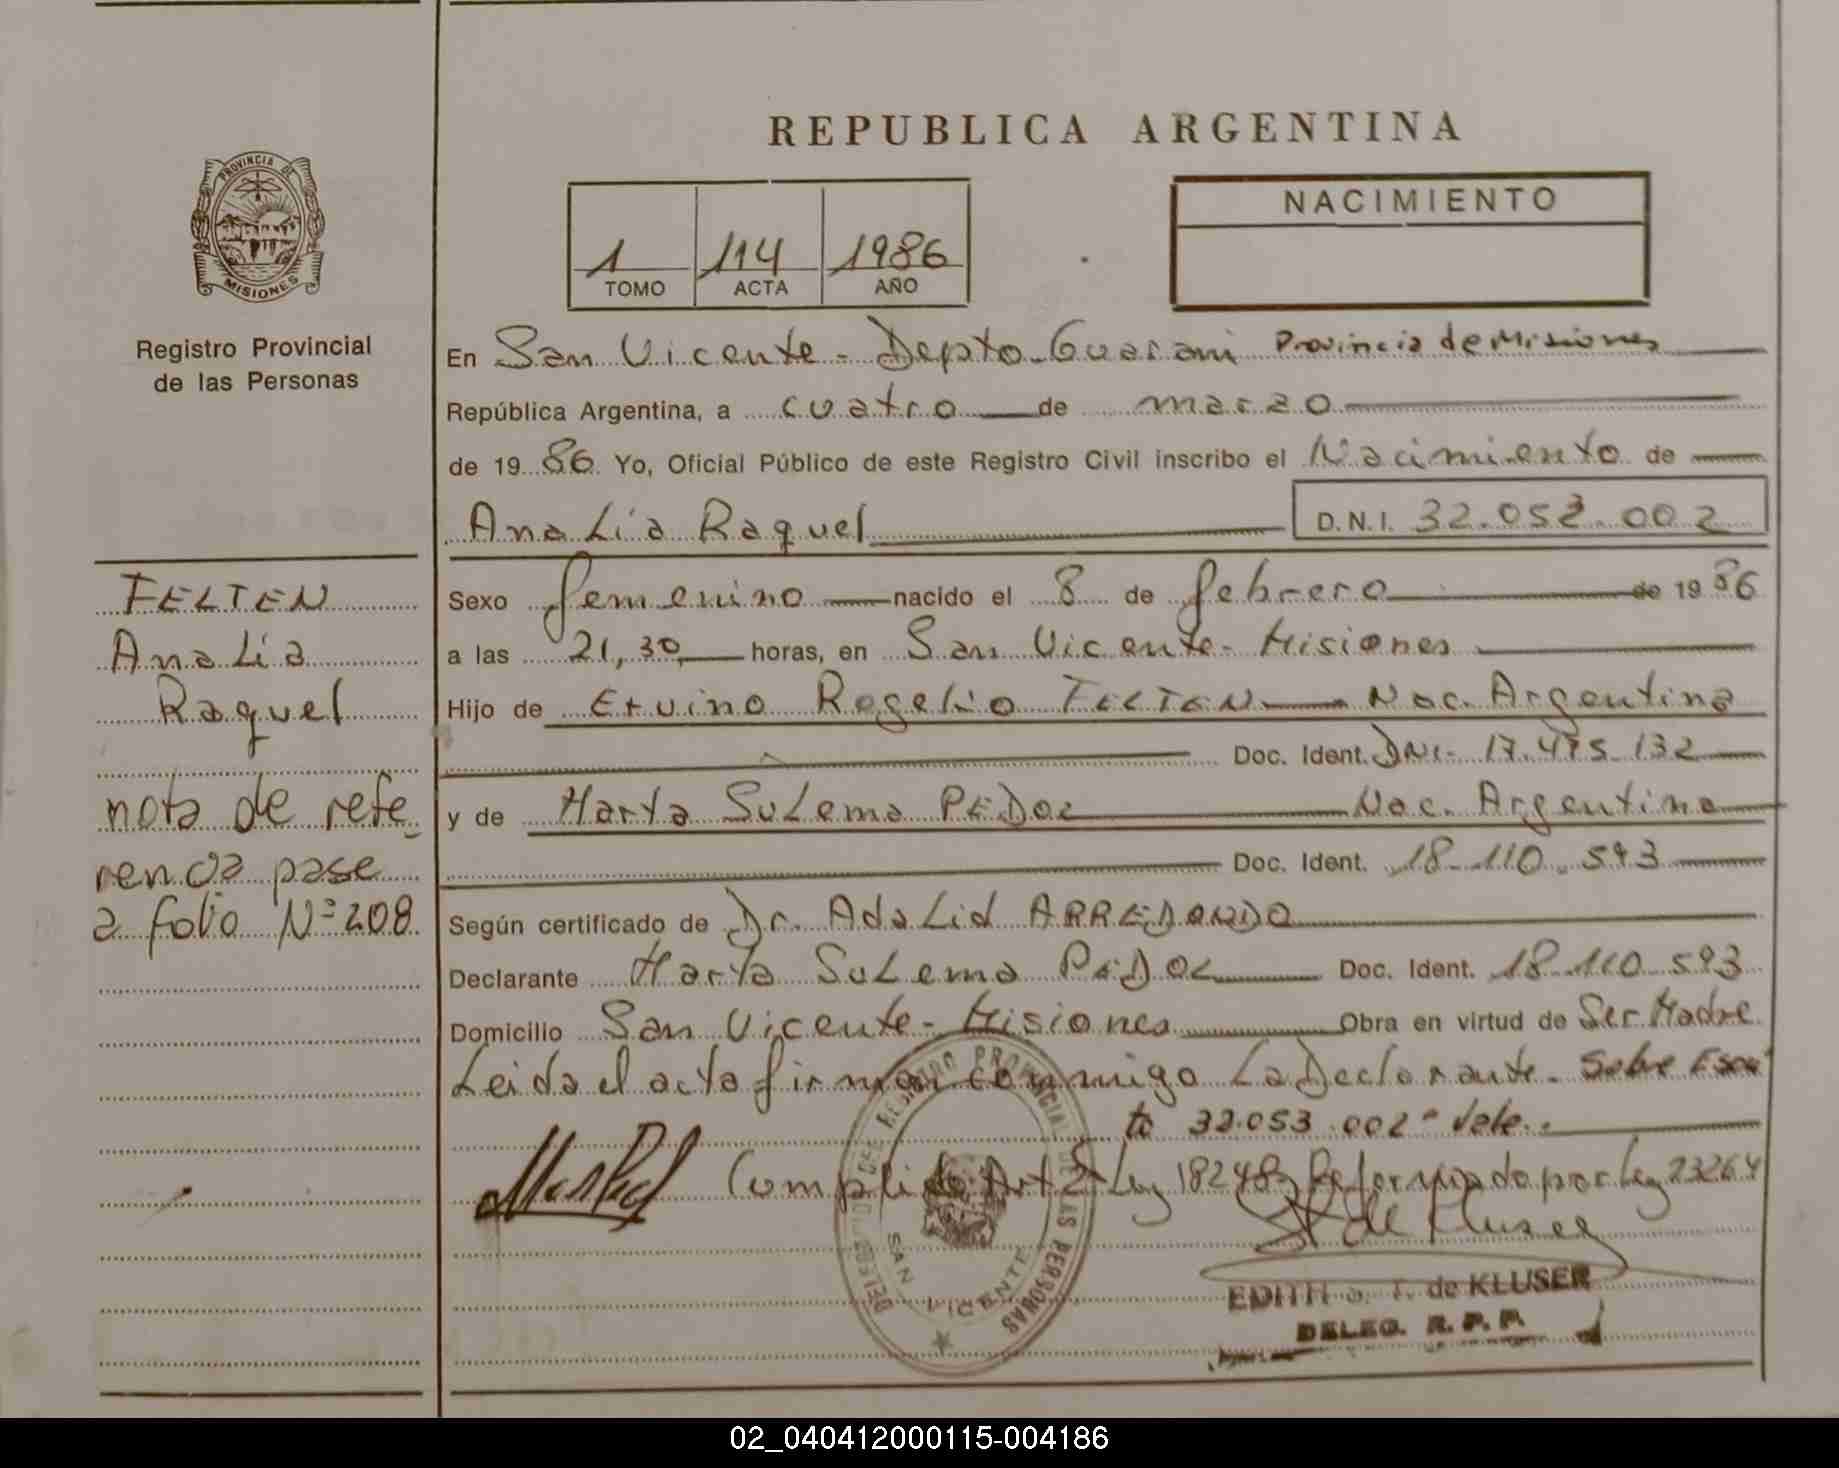 REPUBLICA ARGENTINA
PROVINCIA DE
MISIONES
Registro Provincial
de las Personas
1 114 1986
TOMO ACTA AÑO
NACIMIENTO
En San Vicente - Depto. Guarani Provincia de Misiones
República Argentina, a cuatro de marzo
de 1986 Yo, Oficial Público de este Registro Civil inscribo el Nacimiento de
Ana Lía Raquel D.N.I. 32.053.002
FELTEN
Ana Lía
Raquel
nota de refe_
rencia pase
a folio Nº 208
Sexo femenino nacido el 8 de febrero de 1986
a las 21,30 horas, en San Vicente - Misiones
Hijo de Ervino Rogelio FELTEN Nac. Argentina
Doc. Ident. DNI - 17.475.132
y de Marta Sulema PEDOL Nac. Argentina
Doc. Ident. 18.110.593
Según certificado de Dr. Adalid ARREDONDO
Declarante Marta Sulema PEDOL Doc. Ident. 18.110.593
Domicilio San Vicente - Misiones Obra en virtud de Ser Madre
Leida el acta firman conmigo La Declarante. Sobre Escri
to 32.053.002 - Vale.
Complido Art 2 Ley 18248 Reformado por Ley 23264
DELEGACION DEL REGISTRO PROVINCIAL DE LAS PERSONAS
SAN VICENTE
EDITH T. de KLUSER
DELEG. R. P. P.
02_040412000115-004186